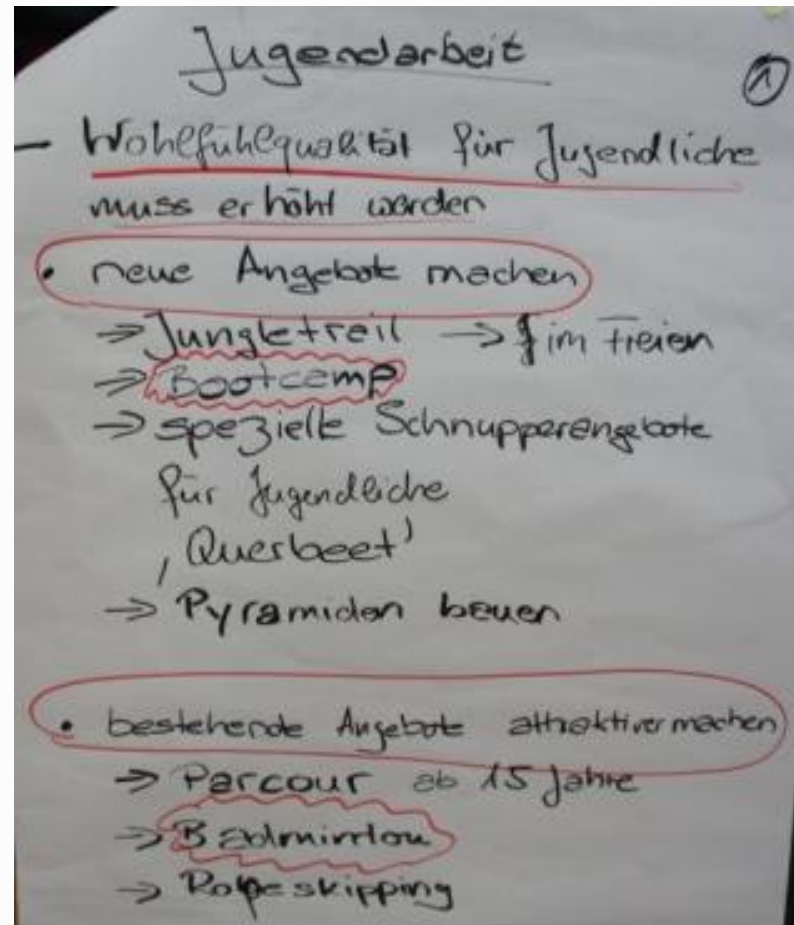 Jugendarbeit
1
- Wohlfühlqualität für Jugendliche
muss erhöht werden
• neue Angebote machen
→ Jungletreil → im Freien
→ Bootcamp
→ spezielle Schnupperangebote
für Jugendliche
, Querbeet'
→ Pyramiden bauen
• bestehende Angebote attraktiver machen
→ Parcour ab 15 Jahre
→ Badminton
→ Ropeskipping